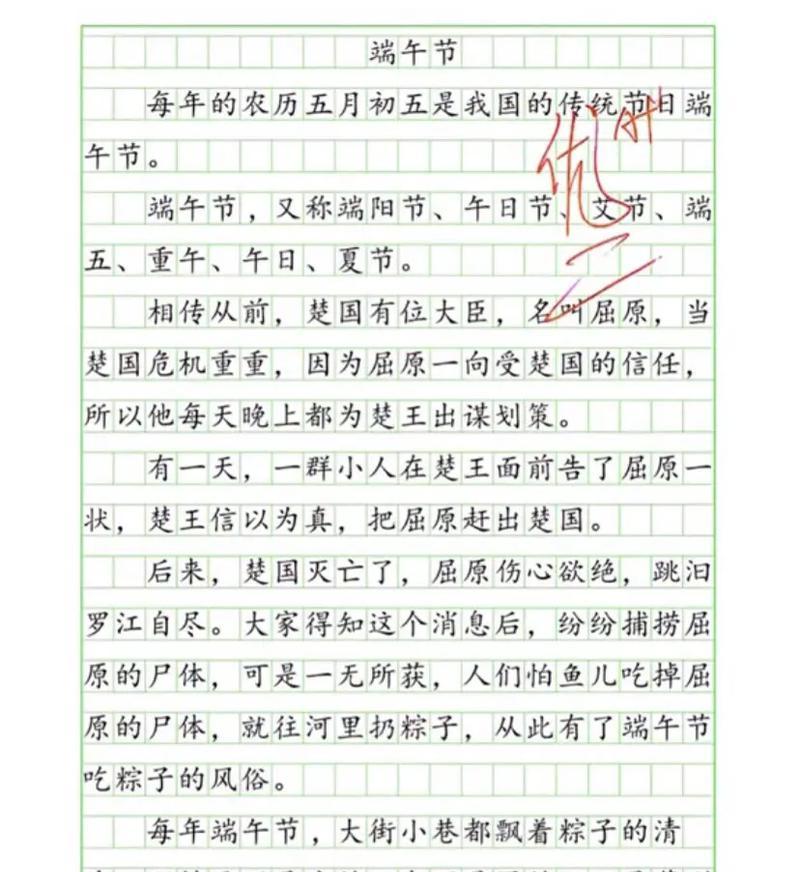 端午节
每年的农历五月初五是我国的传统节日端
午节。
端午节，又称端阳节、午日节、艾节、端
五、重午、午日、夏节。
相传从前，楚国有位大臣，名叫屈原，当
楚国危机重重，因为屈原一向受楚国的信任，
所以他每天晚上都为楚王出谋划策。
有一天，一群小人在楚王面前告了屈原一
状，楚王信以为真，把屈原赶出楚国。
后来，楚国灭亡了，屈原伤心欲绝，跳汨
罗江自尽。大家得知这个消息后，纷纷捕捞屈
原的尸体，可是一无所获，人们怕鱼儿吃掉屈
原的尸体，就往河里扔粽子，从此有了端午节
吃粽子的风俗。
每年端午节，大街小巷都飘着粽子的清
优